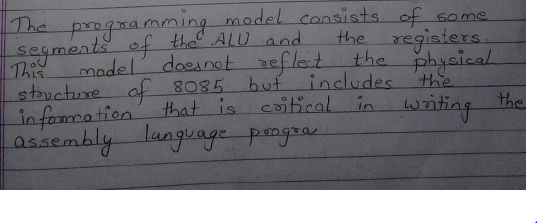 The programming model consists of some
segments of the ALU and the registers.
This model doesnot reflect the physical
structure of 8085 but includes the
information that is critical in writing the
assembly language progra